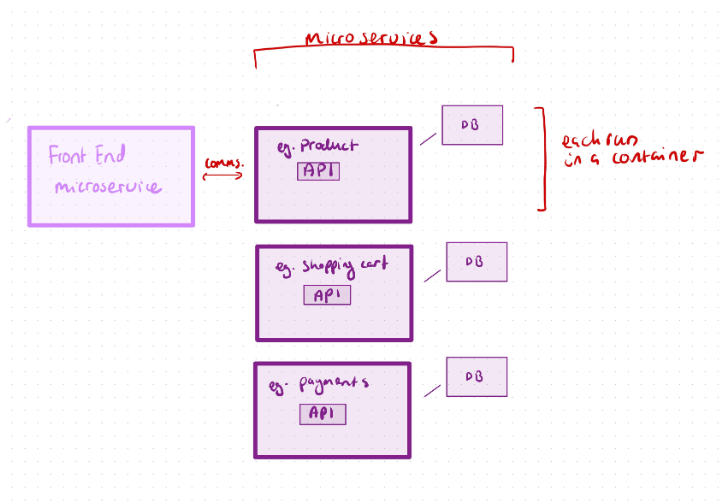 Microservices
Front End
microservice
comms.
eg. Product
API
DB
each run
in a container
eg. Shopping cart
API
DB
eg. payments
API
DB